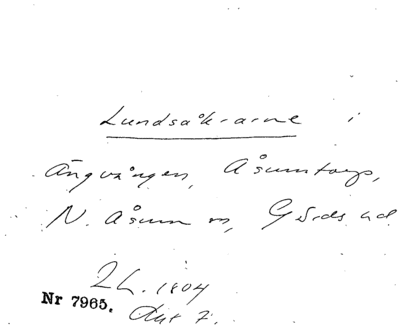 Lundsåkrarne i
Ängvången, Åsumtorp,
N. Åsum sn, Gärds hd.
LL. 1804
Nr 7965. Akt 7.